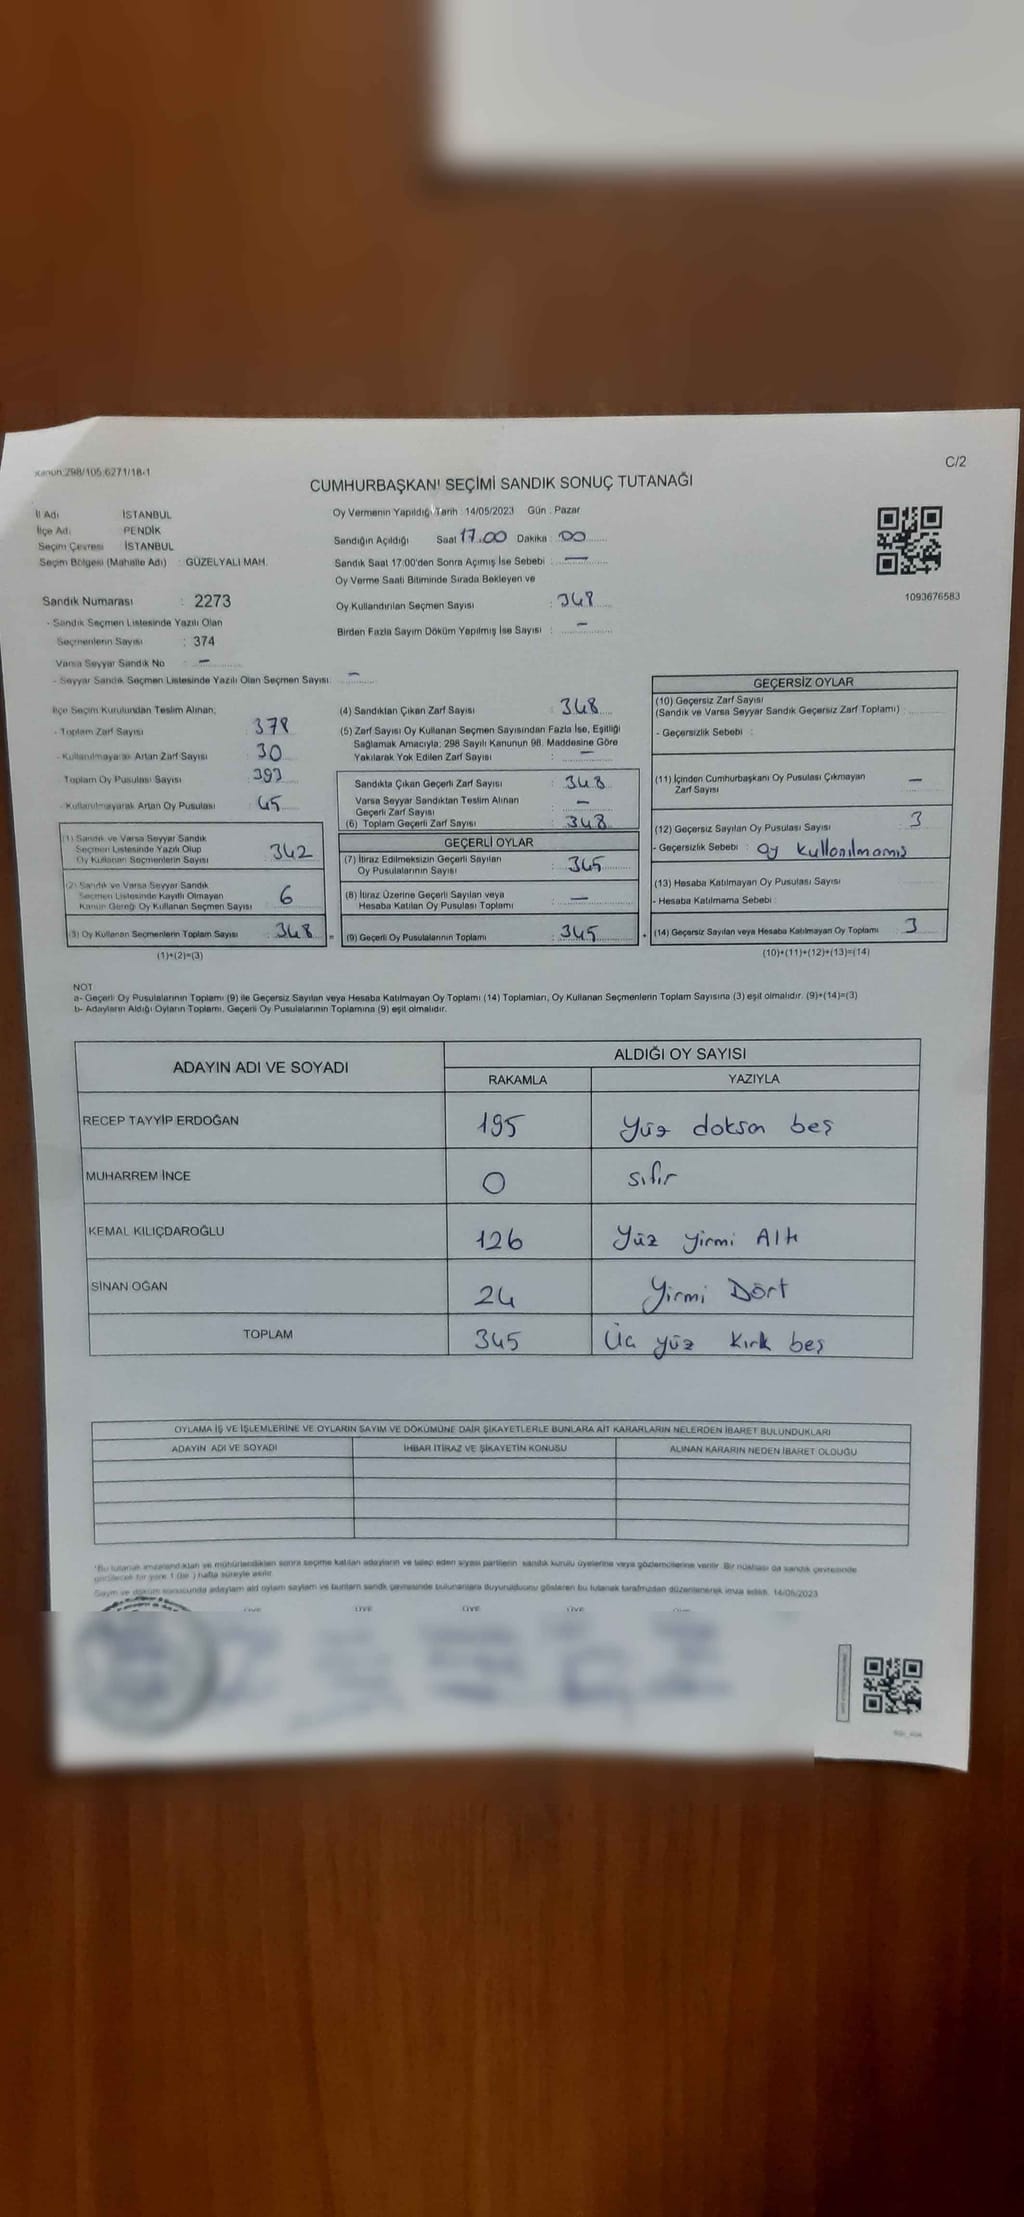 Kanun:298/105,6271/18-1
C/2
CUMHURBAŞKANI SEÇİMİ SANDIK SONUÇ TUTANAĞI
İl Adı İSTANBUL
İlçe Adı PENDİK
Seçim Çevresi İSTANBUL
Seçim Bölgesi (Mahalle Adı) : GÜZELYALI MAH.
Oy Vermenin Yapıldığı Tarih : 14/05/2023 Gün : Pazar
Sandığın Açıldığı Saat 17.00 Dakika : 00
Sandık Saat 17:00'den Sonra Açımış İse Sebebi : —
Oy Verme Saati Bitiminde Sırada Bekleyen ve
Oy Kullandırılan Seçmen Sayısı : 348
Birden Fazla Sayım Döküm Yapılmış İse Sayısı : —
1093676583
Sandık Numarası : 2273
- Sandık Seçmen Listesinde Yazılı Olan
Seçmenlerin Sayısı : 374
Varsa Seyyar Sandık No : —
- Seyyar Sandık Seçmen Listesinde Yazılı Olan Seçmen Sayısı : —
İlçe Seçim Kurulundan Teslim Alınan;
- Toplam Zarf Sayısı : 378
- Kullanılmayarak Artan Zarf Sayısı : 30
Toplam Oy Pusulası Sayısı : 393
- Kullanılmayarak Artan Oy Pusulası : 45
(1) Sandık ve Varsa Seyyar Sandık
Seçmen Listesinde Yazılı Olup
Oy Kullanan Seçmenlerin Sayısı : 342
(2) Sandık ve Varsa Seyyar Sandık
Seçmen Listesinde Kayıtlı Olmayan
Kanun Gereği Oy Kullanan Seçmen Sayısı : 6
(3) Oy Kullanan Seçmenlerin Toplam Sayısı : 348
(1)+(2)=(3)
(4) Sandıktan Çıkan Zarf Sayısı : 348
(5) Zarf Sayısı Oy Kullanan Seçmen Sayısından Fazla İse, Eşitliği
Sağlamak Amacıyla; 298 Sayılı Kanunun 98. Maddesine Göre
Yakılarak Yok Edilen Zarf Sayısı : —
Sandıkta Çıkan Geçerli Zarf Sayısı : 348
Varsa Seyyar Sandıktan Teslim Alınan
Geçerli Zarf Sayısı : —
(6) Toplam Geçerli Zarf Sayısı : 348
GEÇERLİ OYLAR
(7) İtiraz Edilmeksizin Geçerli Sayılan
Oy Pusulalarının Sayısı : 345
(8) İtiraz Üzerine Geçerli Sayılan veya
Hesaba Katılan Oy Pusulası Toplamı : —
(9) Geçerli Oy Pusulalarının Toplamı : 345
GEÇERSİZ OYLAR
(10) Geçersiz Zarf Sayısı
(Sandık ve Varsa Seyyar Sandık Geçersiz Zarf Toplamı) :
- Geçersizlik Sebebi :
(11) İçinden Cumhurbaşkanı Oy Pusulası Çıkmayan
Zarf Sayısı : —
(12) Geçersiz Sayılan Oy Pusulası Sayısı : 3
- Geçersizlik Sebebi : oy kullanılmamış
(13) Hesaba Katılmayan Oy Pusulası Sayısı :
- Hesaba Katılmama Sebebi :
(14) Geçersiz Sayılan veya Hesaba Katılmayan Oy Toplamı : 3
(10)+(11)+(12)+(13)=(14)
NOT
a- Geçerli Oy Pusulalarının Toplamı (9) ile Geçersiz Sayılan veya Hesaba Katılmayan Oy Toplamı (14) Toplamları, Oy Kullanan Seçmenlerin Toplam Sayısına (3) eşit olmalıdır. (9)+(14)=(3)
b- Adayların Aldığı Oyların Toplamı, Geçerli Oy Pusulalarının Toplamına (9) eşit olmalıdır.
ADAYIN ADI VE SOYADI
ALDIĞI OY SAYISI
RAKAMLA YAZIYLA
RECEP TAYYİP ERDOĞAN 195 Yüz doksan beş
MUHARREM İNCE 0 sıfır
KEMAL KILIÇDAROĞLU 126 Yüz yirmi Altı
SİNAN OĞAN 24 Yirmi Dört
TOPLAM 345 Üç yüz kırk beş
OYLAMA İŞ VE İŞLEMLERİNE VE OYLARIN SAYIM VE DÖKÜMÜNE DAİR ŞİKAYETLERLE BUNLARA AİT KARARLARIN NELERDEN İBARET BULUNDUKLARI
ADAYIN ADI VE SOYADI İHBAR İTİRAZ VE ŞİKAYETİN KONUSU ALINAN KARARIN NEDEN İBARET OLDUĞU
*Bu tutanak imzalandıktan ve mühürlendikten sonra seçime katılan adayların ve talep eden siyasi partilerin sandık kurulu üyelerine veya gözlemcilerine verilir. Bir nüshası da sandık çevresinde
görülecek bir yere 1 (bir) hafta süreyle asılır.
Sayım ve döküm sonucunda adayların ad oyların sayıların ve bunların sandık çevresinde bulunanlara duyurulduğunu gösteren bu tutanak tarafımızdan düzenlenerek imza edildi. 14/05/2023
ÜYE ÜYE ÜYE ÜYE